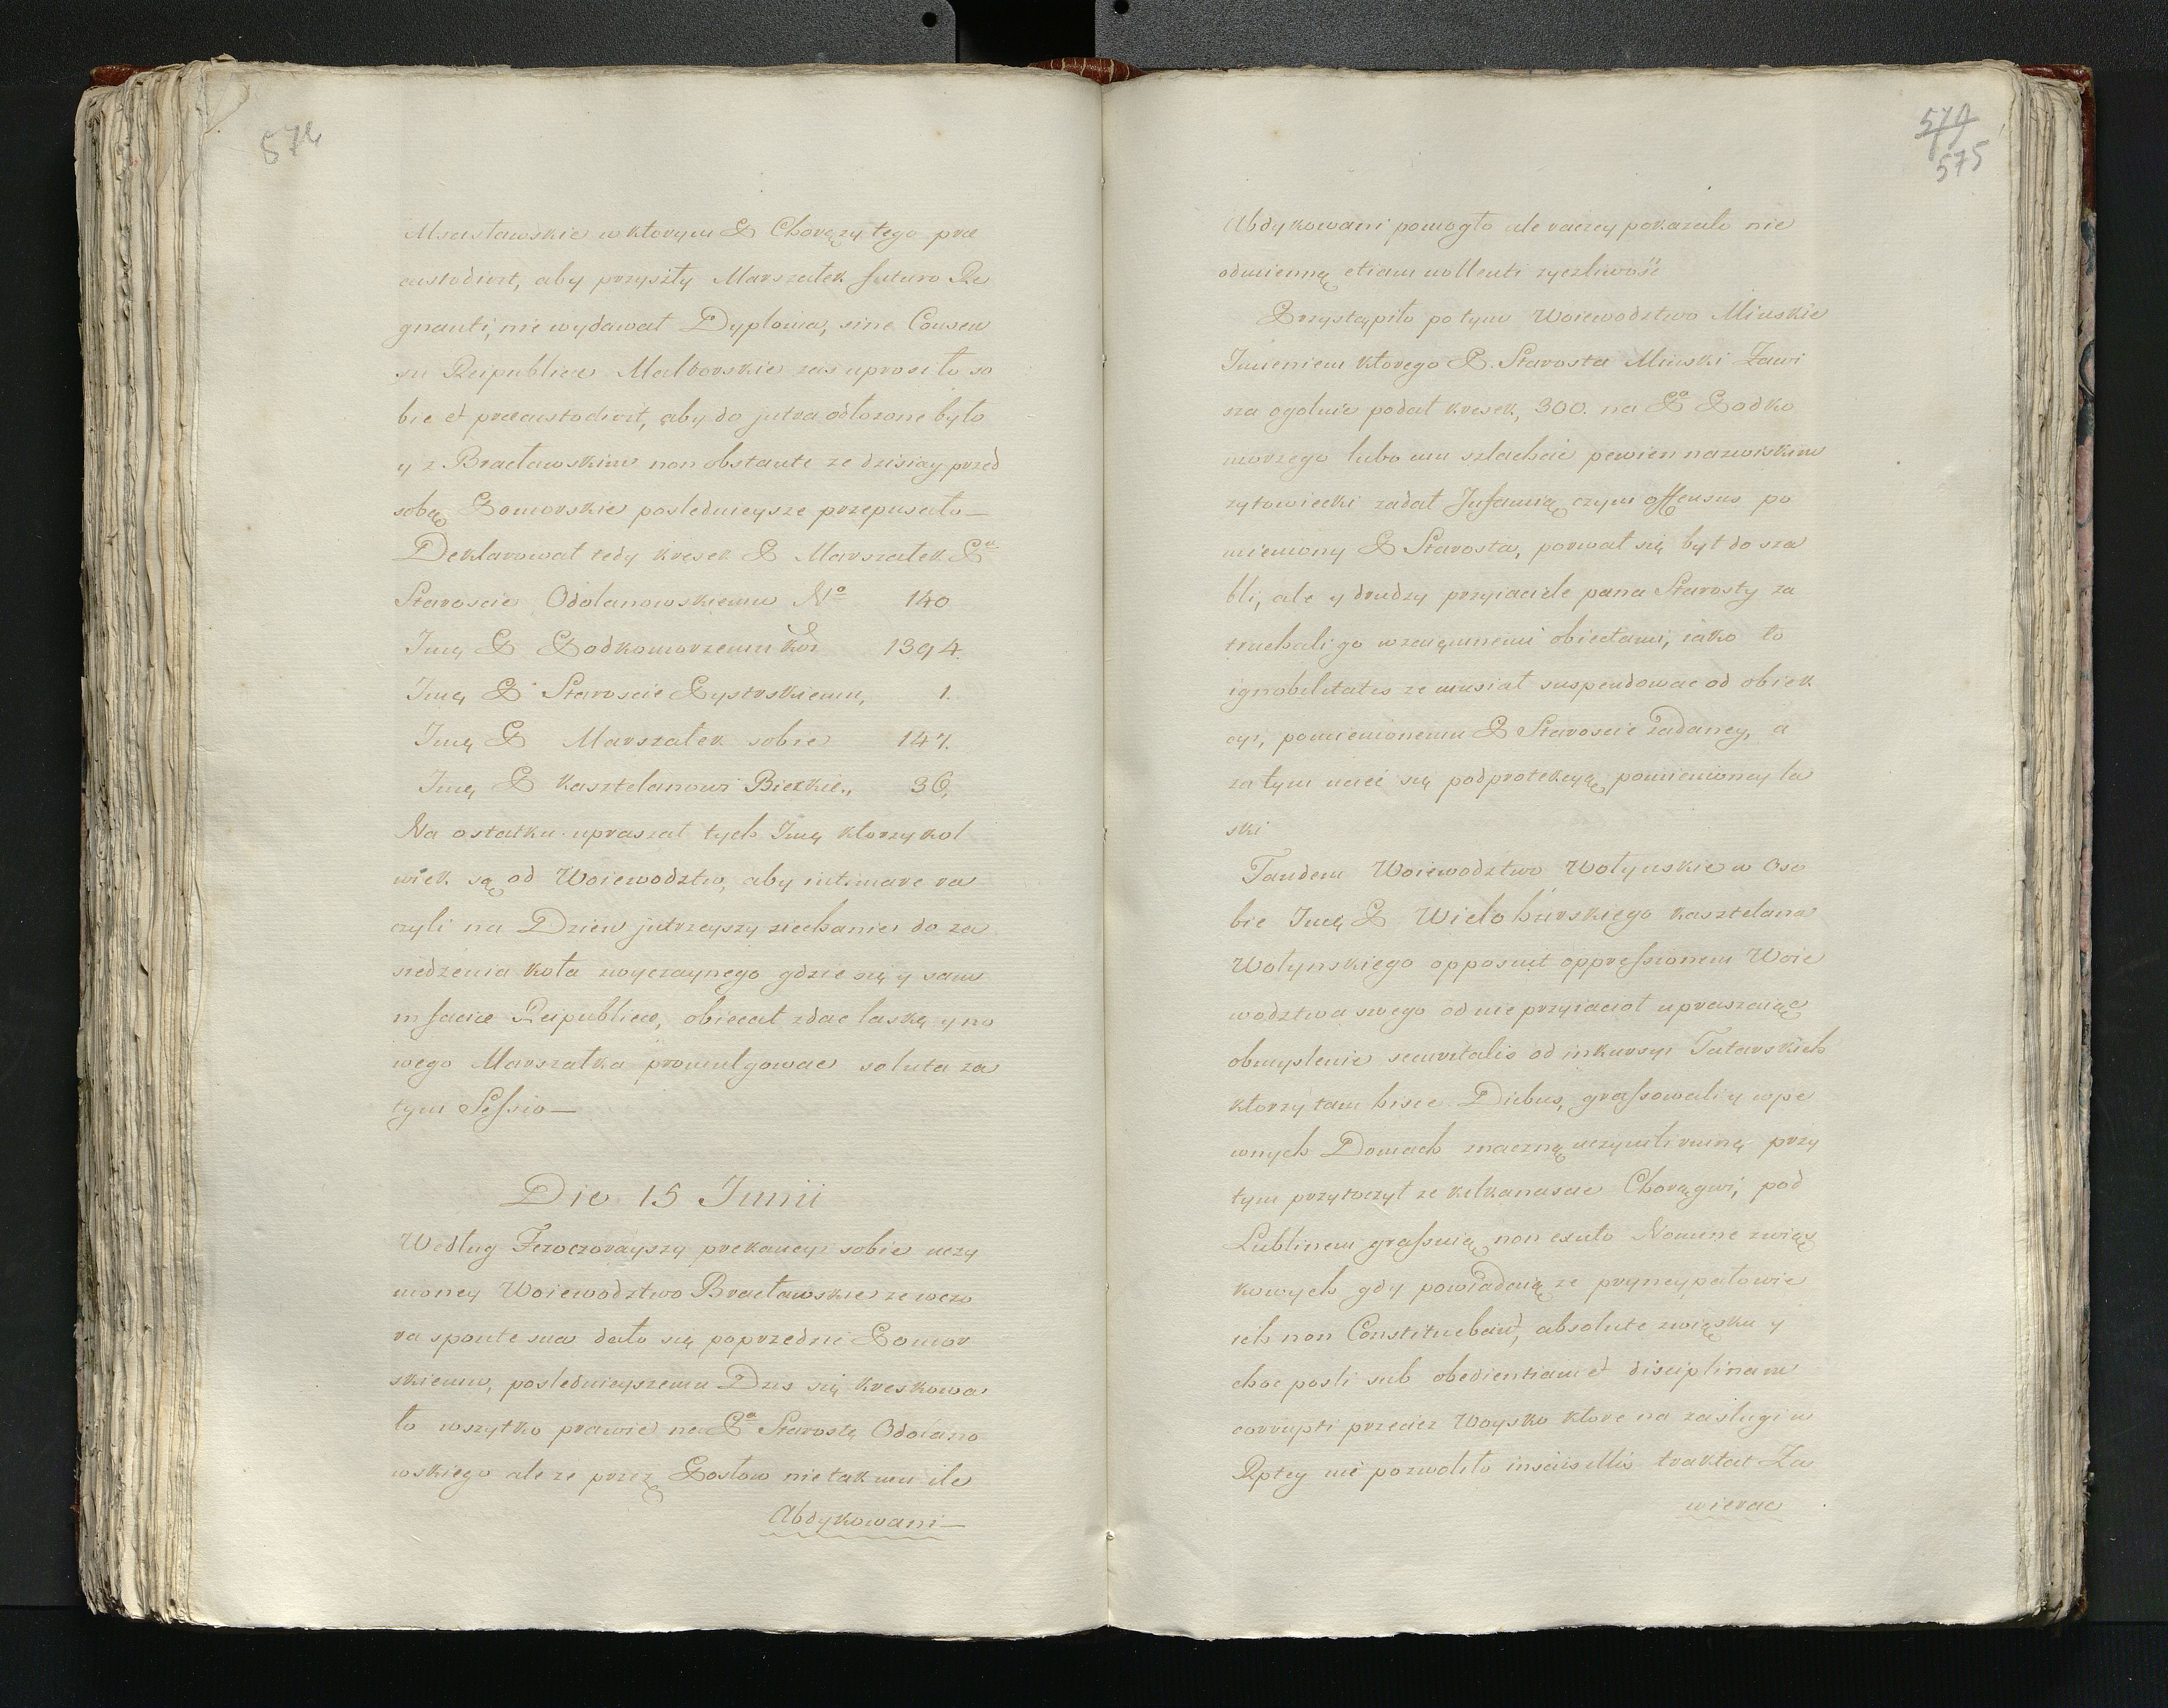 574
Mscisławskie w ktorym P Chorązy tego prae
custodivit, aby przyszły Marszałek futuro Re
gnanti, nie wydawał Dyploma, sine Consen
su Reipublicae Malborskie zas uprosiło so
bie et praecustodivit, aby do jutra odłozone było
y z Bracławskim non obstante ze dzisiay przed
sobą Pomorskie poslednieysze przepuscało—
Deklarował tedy kresek P Marszałek Pu
Staroscie Odolanowskiemu No 140
Imę P Podkomorzemu Kor 1394.
Imę P Staroscie Pystrskiemu, 1.
Imę P Marszałek sobie 147.
Imę P Kasztelanowi Bieckie,, 36,
Na ostatku upraszał tych Imę ktorzykol
wiek są od Woiewodztw, aby intimare ra
czyli na Dzien jutrzeyszy ziechanie do za
siedzenia koła zwyczaynego gdzie się y sam
in facie Reipublicae, obiecał zdac laskę y no
wego Marszałka promulgowac soluta za
tym Sessio—
Die 15 Junii
Według Wczorayszy prekaucyi sobie uczy
nioney Woiewodztwo Bracławskie ze wczo
ra sponte sua dało się poprzedzic Pomor
skiemu, poslednieyszemu Dzis się kreskowa
ło wszytko prawie na Pa Starostę Odolano
wskiego ale ze przez Posłow nie tak mu ile
Abdykowani—
574
575
Abdykowani pomogło ale raczey pokazało nie
odmienną etiam nollenti zyczliwość
Przystąpiło po tym Woiewodztwo Minskie
Imieniem ktorego P. Starosta Minski Zawi
sza ogolnie podał kresek, 300. na Pa Podko
morzego lubo mu szlachcic pewien nazwiskiem
zytowiecki zadał Infamią czym offensus po
mieniony P Starosta, porwał się był do sza
bli, ale y drudzy przyiaciele pana Starosty za
truchali go wzaięmnemi obiectami, iako to
ignobilitatis ze musiał suspendowac od obiek
cyi, pomienionemu P Staroscie Zadaney, a
zatym uciec się pod protekcyą pomienioney la
ski
Tandem Woiewodztwo Wołynskie w Oso
bie Imę P Wielohurskiego kasztelana
Wołynskiego opposuit oppressionem Woie
wodztwa swego od nieprzyiacioł upraszaiąc
obmyslenie securitatis od inkursyi Tatarskich
ktorzy tam hisce Diebus, grassowali y w pe
wnych Domach znaczną uczynili ruinę przy
tym przytoczył ze kilkanascie Chorągwi, pod
Lublinem grassuią non exuto Nomine związ
kowych gdy powiadaią ze pryncypałowie
ich non Constituebant, absolute związku y
choc posli sub obedientiam et disciplinam
corrupti przeciez Woysko ktore na zasługi w
Rptey nie pozwoliło insciis illis traktat Za
wierac